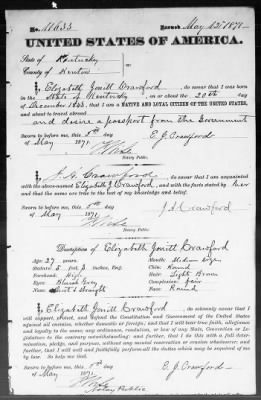 No. 10633 Issued May 13/1871
UNITED STATES OF AMERICA.
State of Kentucky
County of Kenton
I, Elizabeth Jouitt Crawford, do swear that I was
born in the State of Kentucky on or about the 20th day
of December 1843, that I am a NATIVE AND LOYAL CITIZEN OF THE UNITED STATES,
and about to travel abroad
and desire a passport from the Government
Sworn to before me, this 5th day E. J. Crawford
of May 1871.
Notary Public.
I, J. A. Crawford, do swear that I am acquainted
with the above-named Elizabeth J. Crawford, and with the facts stated by her
and that the same are true to the best of my knowledge and belief.
Sworn to before me, this 5th day
of May 1871. J A Crawford
Notary Public.
Description of Elizabeth Jouitt Crawford
Age: 27 years. Mouth: Medium size
Stature: 5 feet inches, Eng. Chin: Round
Forehead: High Hair: Light Brown
Eyes: Bluish Grey Complexion: fair
Nose: Straight Face: Round
I, Elizabeth Jouitt Crawford, do solemnly swear that I
will support, protect, and defend the Constitution and Government of the United States
against all enemies, whether domestic or foreign; and that I will bear true faith, allegiance
and loyalty to the same, any ordinance, resolution, or law of any State, Convention or Legislature
to the contrary notwithstanding; and further, that I do this with a full determination,
pledge, and purpose, without any mental reservation or evasion whatsoever; and
further, that I will well and faithfully perform all the duties which may be required of me
by law. So help me God.
Sworn to before me, this 5th day
of May 1871. E. J. Crawford
Notary Public